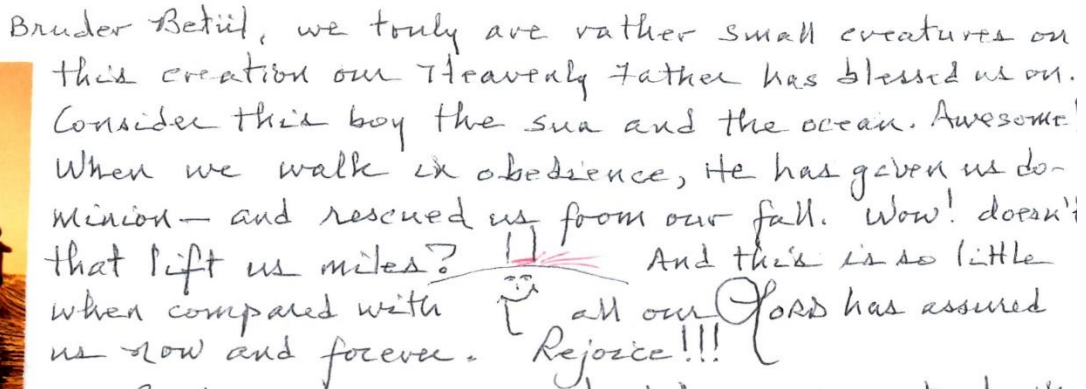 Bruder Betül, we truly are rather small creatures on
this creation our Heavenly Father has blessed us on.
Consider this boy the sun and the ocean. Awesome!
When we walk in obedience, He has given us do-
minion — and rescued us from our fall. Wow! doesn't
that lift us miles? And this is so little
when compared with all our LORD has assured
us now and forever. Rejoice!!!